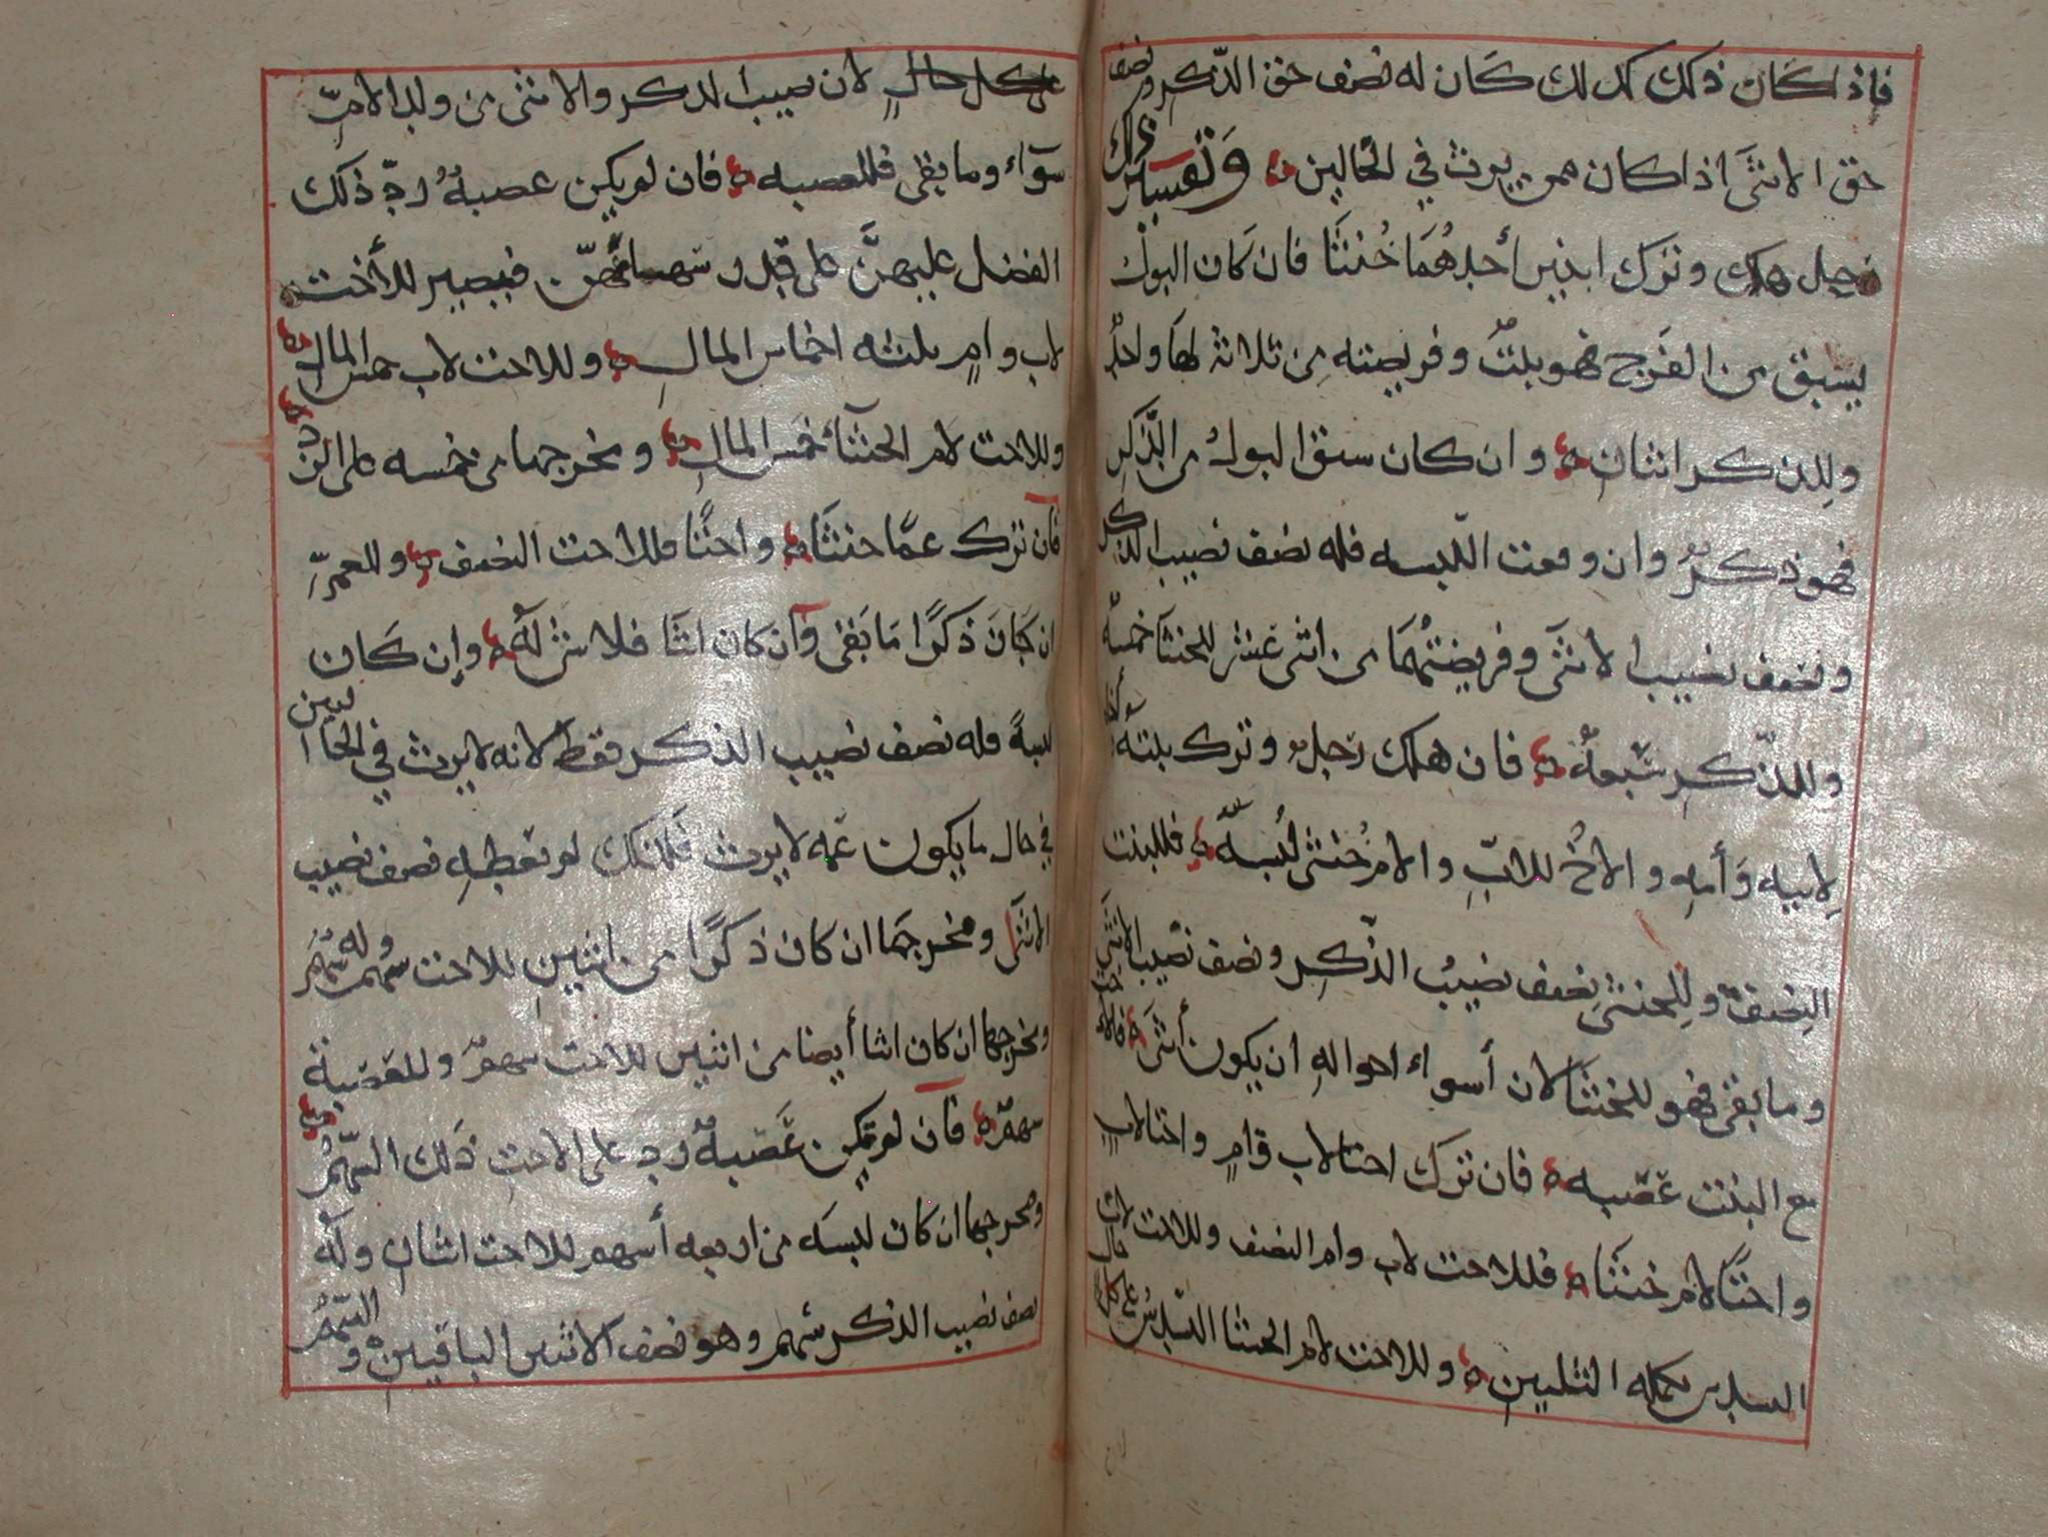 فاذا كان ذلك كذلك كان له نصف حق الذكر ونصف
حق الانثى اذا كان ممن يرث في الحالين وتفسير ذلك
رجل هلك وترك ابنين أحدهما خنثا فان كان البول
يسبق من الفرج فهو بنت وفريضته من ثلاثة لها واحد
وللذكر اثنان وان كان سبق البول من الذكر
فهو ذكر وان وقعت اللبسه فله نصف نصيب الذكر
ونصف نصيب الانثى وفريضتهما من اثنى عشر للخنثا خمسة
وللذكر سبعة فان هلك رجل وترك بنته وأخا
لابيه وأمه والاخ للاب والام خنثى لبسة فللبنت
النصف وللخنثى نصف نصيب الذكر ونصف نصيب الانثى
وما بقى فهو للخنثا لان أسواء احواله ان يكون أنثى فالاخت
مع البنت عصبه فان ترك اختا لاب وام واختا لاب
واختا لام خنثا فللاخت لاب وام النصف وللاخت لاب
السدس تكمله الثلثين وللاخت لام الخنثا السدس على كل حال
على كل حال لان نصيب الذكر والانثى من ولد الام
سواء وما بقى فللعصبه فان لم يكن عصبة رد ذلك
الفضل عليهن على قدر سهامهن فيصير للأخت
لاب وام ثلثه اخماس المال وللاخت لاب خمس المال
وللاخت لام الخنثا خمس المال ومخرجها من خمسه على الرد
فان ترك عما خنثا واختا فللاخت النصف وللعم
ان كان ذكرا ما بقى وان كان انثا فلا شى له وإن كان
لبسة فله نصف نصيب الذكر فقط لانه لا يرث في الحالين
في حال ما يكون عمه لا يرث فلذلك لم تعطه نصف نصيب
الانثى ومخرجها ان كان ذكرا من اثنين للاخت سهم وله سهم
ومخرجها ان كان انثا أيضا من اثنين للاخت سهم وللعصبة
سهم فان لم تكن عصبة رد على الاخت ذلك السهم
ومخرجها ان كان لبسه من اربعه أسهم للاخت اثنان وله
نصف نصيب الذكر سهم وهو نصف الاثنين الباقيين والسهم